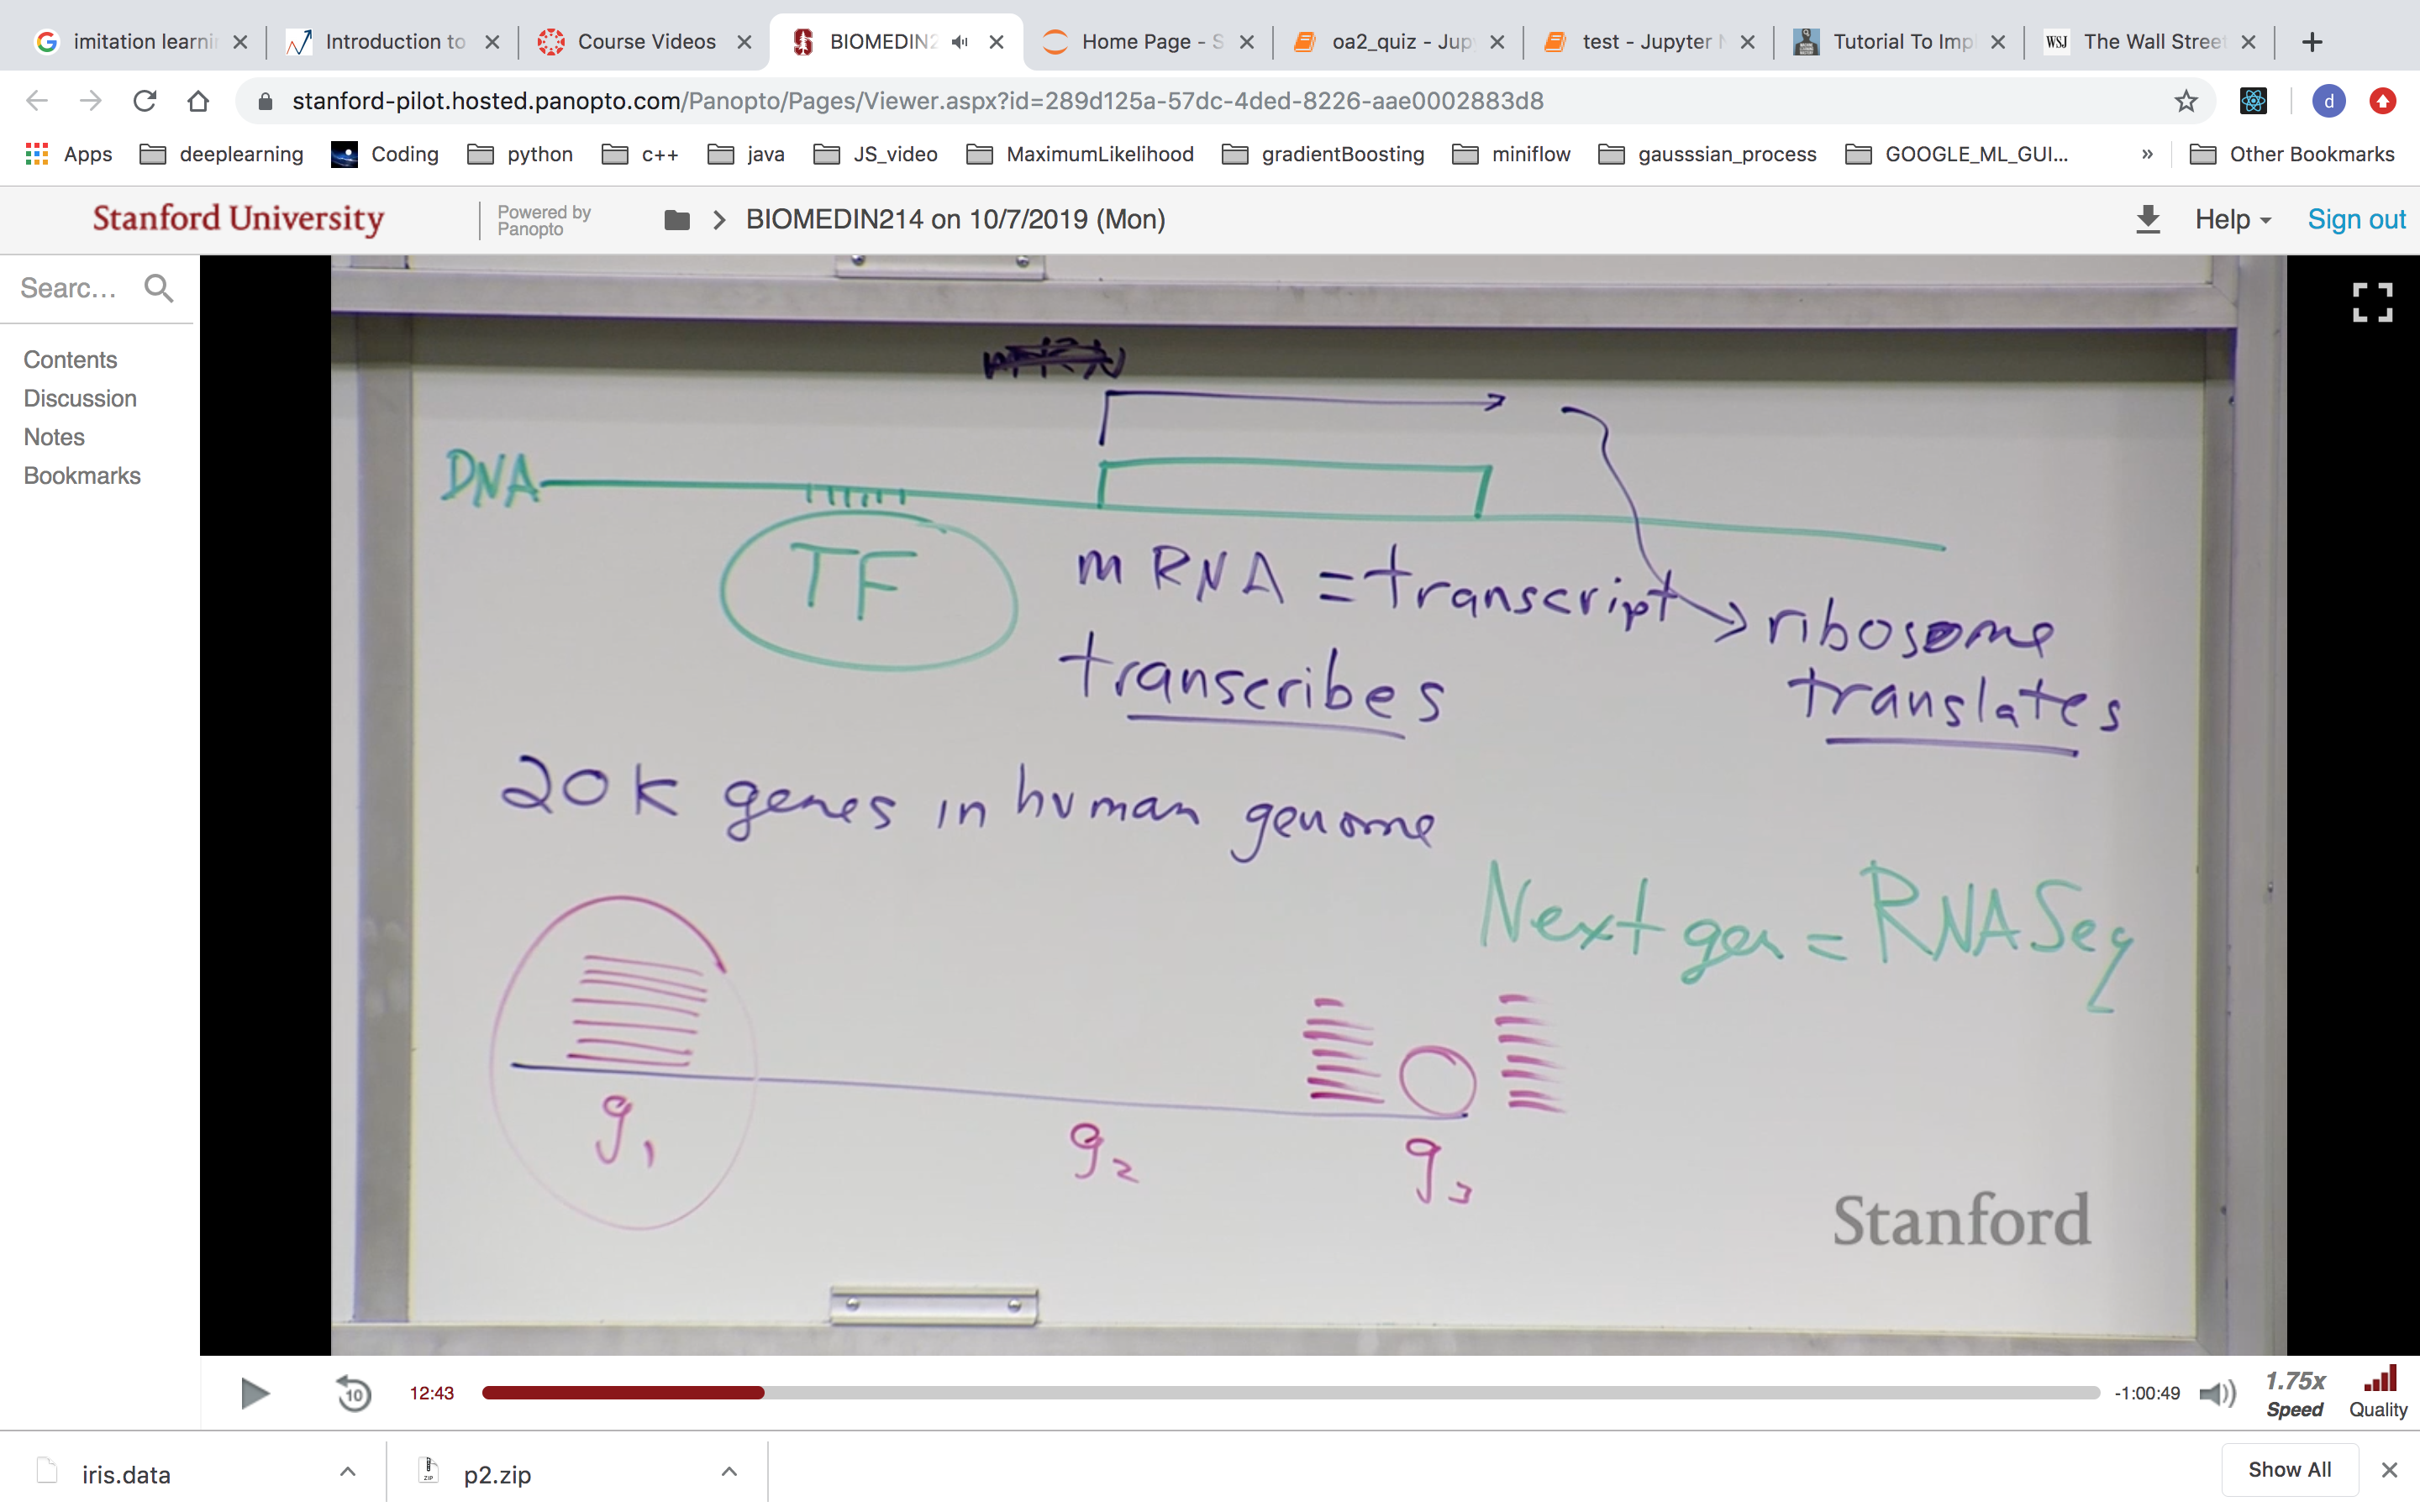 imitation learni
Introduction to
Course Videos
BIOMEDIN2
Home Page - S
oa2_quiz - Jup
test - Jupyter N
Tutorial To Imp
WSJ The Wall Stree
stanford-pilot.hosted.panopto.com/Panopto/Pages/Viewer.aspx?id=289d125a-57dc-4ded-8226-aae0002883d8
d
Apps deeplearning Coding python c++ java JS_video MaximumLikelihood gradientBoosting miniflow gausssian_process GOOGLE_ML_GUI... » Other Bookmarks
Stanford University
Powered by
Panopto
BIOMEDIN214 on 10/7/2019 (Mon)
Help
Sign out
Searc...
Contents
Discussion
Notes
Bookmarks
DNA
TF
mRNA = transcript → ribosome
transcribes
translates
20K genes in human genome
Next gen = RNASeq
g1
g2
g3
Stanford
10
12:43
-1:00:49
1.75x
Speed
Quality
iris.data
ZIP
p2.zip
Show All